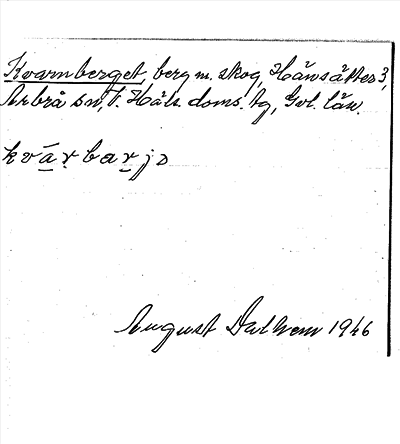 Kvarnberget, berg m. skog, Hänsätter 3,
Arbrå sn, V. Häls. doms. tg, Gvl. län.
kvárbarjə
August Dalhem 1946